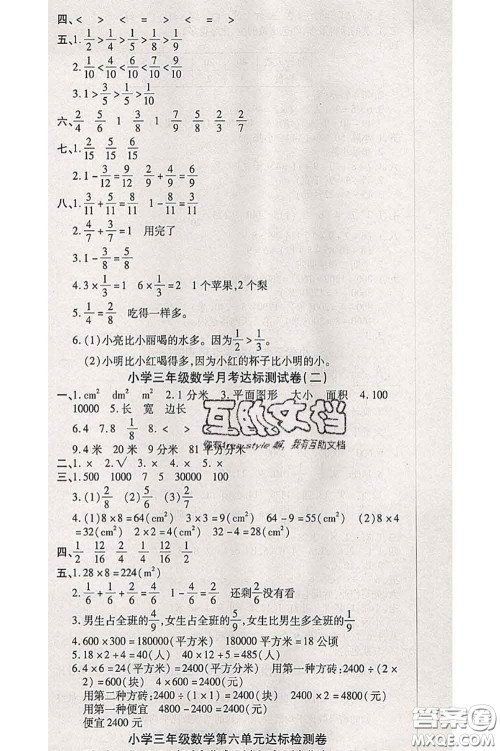 四、< > < = > < = >
五、1. 1/2 > 1/3 > 1/5 > 1/9
2. 1/10 < 2/10 < 7/10 < 9/10
3. 1 > 3/5 > 1/5 > 1/9
六、2/4 5/6 1 7/9 5/8 3/7 2/7
七、1. 2/15 5/15 6/15
2. 1-9/10=1/10 2/9+4/9=6/9
八、1. 3/11+5/11=8/11 1-8/11=3/11
2. 4/7+3/7=1 用完了
3. 1-5/8=3/8
4. 3×1/3=1 6×1/3=2 1个苹果,2个梨
5. 1/4=2/8 吃得一样多。
6. (1)小亮比小丽喝的水多。因为1/2>1/3。
(2)小明比小红喝得多,因为小红的杯子比小明的小。
小学三年级数学月考达标测试卷(二)
一、1. cm² dm² m² 2. 1分米 3. 平面图形 大小 面积 4. 100
10000 5. 长 宽 边长
6. 4 7. 8 1/8 8. < >
9. 4米 20米 9分米 81平方分米
二、1. × 2. √ 3. × 4. ×
三、1. 500 1000 7 5 30000 4000
3. (1)2/8 (2)5/8
4. (1)8×8=64(cm²) 3×3=9(cm²) 64-9=55(cm²) (2)8×4
=32(cm²) 2×2=4(cm²) 32-4=28(cm²)
四、1/2 12/16 2/4 1/2 4/16 1/2
五、1. 28×8=224(m²)
2. 1/6+3/6=4/6 1-4/6=2/6 还剩2/6没有看
3. 男生占全班的4/9,女生占全班的5/9,女生比男生多全班的1/9
4. 600×300=180000(平方米) 180000平方米=18公顷
5. 18×2+4=40(人) 40×2+5=85(人)
6. 4×6=24(平方米)=2400(平方分米) 用第一种方砖:2400÷(2
×3)=400(块) 6×400=2400(元)
用第二种方砖:2400÷(2×2)=600(块) 4×600=2400(元)
用第一种方砖2400+2400=4800(元) 2400×2=4800(元)
便宜2400元
小学三年级数学第六单元达标检测卷
互助文档
我有互助文档
答案圈
MXQE.COM